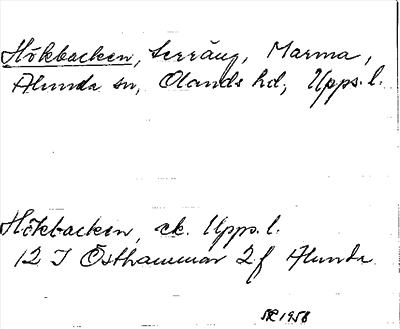 Hökbacken, terräng, Marma,
Alunda sn, Olands hd, Upps. l.
Hökbacken, ek. Upps. l.
12 I Östhammar 2 f Alunda
1958